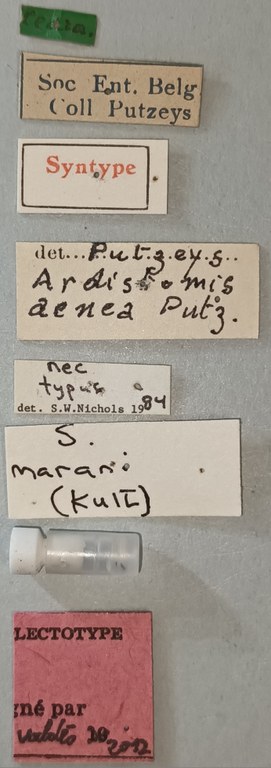 Soc Ent. Belg
Coll Putzeys
Syntype
det... Putzeys..
Ardistomis
aenea Putz.
nec
typus
det. S.W.Nichols 1984
S.
marani
(Kult)
LECTOTYPE
gné par
Valdés 2012